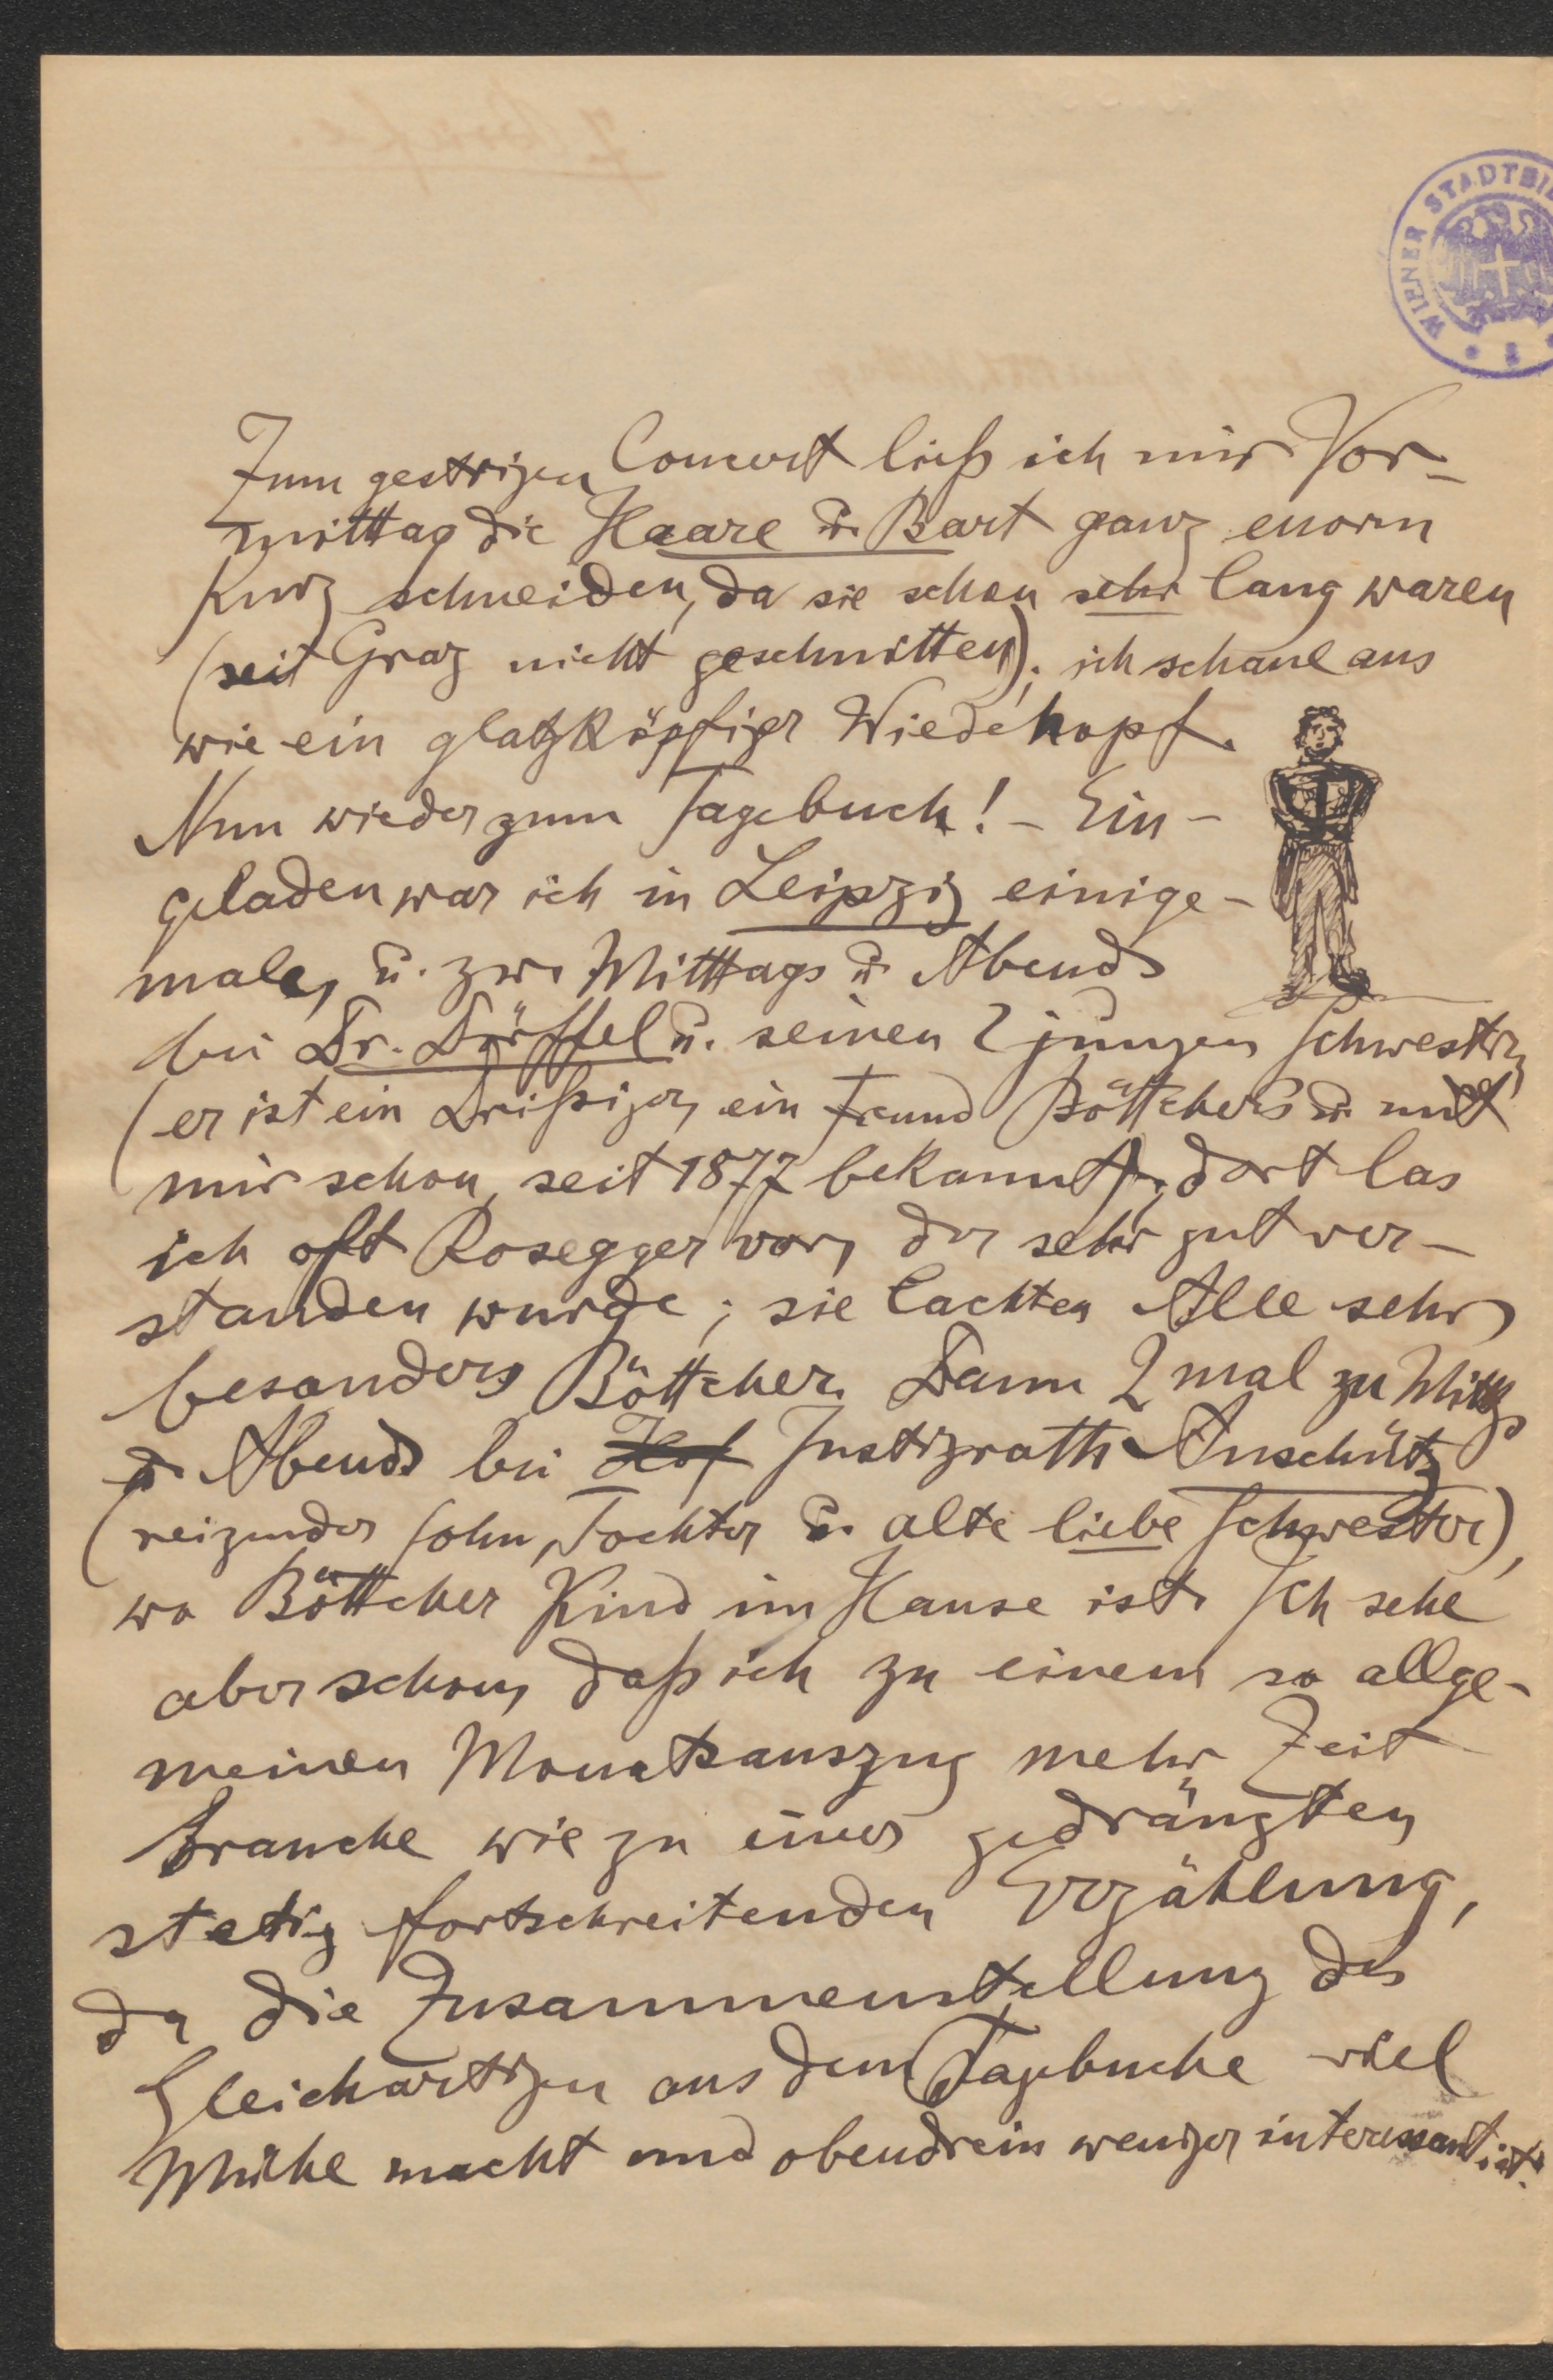 WIENER STADTBI
Zum gestrigen Concert ließ ich mir Vor-
mittag die Haare u. Bart ganz enorm
kurz schneiden, da sie schon sehr lang waren
(seit Graz nicht geschnitten); ich schaue aus
wie ein glatzköpfiger Wiedehopf.
Nun wieder zum Tagebuch! - Ein-
geladen war ich in Leipzig einige-
male, u. zw. Mitttags u. Abends
bei Dr. Dörffel u. seinen 2 jungen Schwestern
(er ist ein Dreißiger, ein Freund Böttchers u. mit
mir schon seit 1877 bekannt), dort las
ich oft Rosegger vor, der sehr gut ver-
standen wurde; sie lachten Alle sehr,
besonders Böttcher. Dann 2 mal zu Mittg
u. Abends bei Hof Justizrath Anschütz
(reizender Sohn, Tochter u. alte liebe Schwester),
wo Böttcher Kind im Hause ist. Ich sehe
aber schon, daß ich zu einem so allge-
meinen Monatsauszug mehr Zeit
brauche wie zu einer gedrängten
stetig fortschreitenden Erzählung,
da die Zusammenstellung des
Gleichartigen aus dem Tagebuche viel
Mühe macht und obendrein weniger interessant ist.